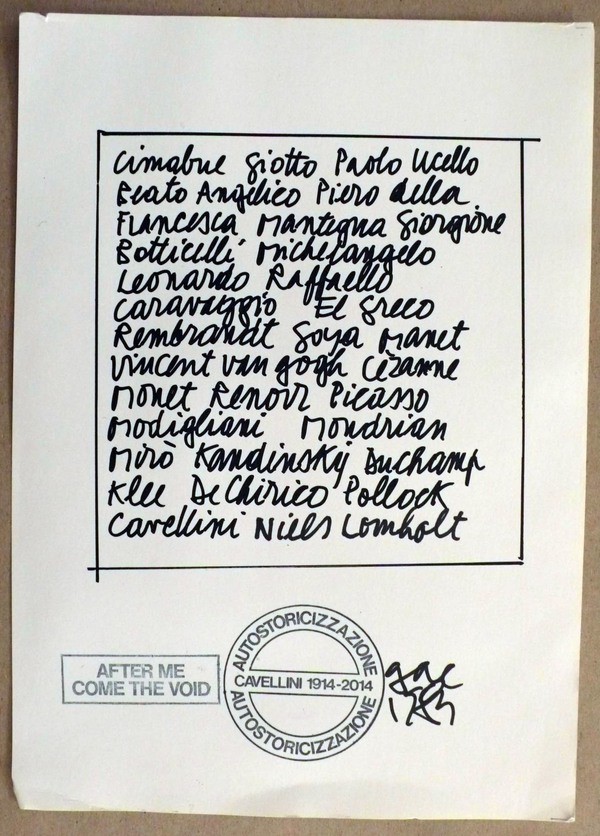 Cimabue Giotto Paolo Ucello
Beato Angelico Piero della
Francesca Mantegna Giorgione
Botticelli Michelangelo
Leonardo Raffaello
Caravaggio El Greco
Rembrandt Goya Manet
Vincent van gogh Cézanne
Monet Renoir Picasso
Modigliani Mondrian
Mirò Kandinskij Duchamp
Klee De Chirico Pollock
Cavellini Niels Lomholt
AUTOSTORICIZZAZIONE
AFTER ME
COME THE VOID
CAVELLINI 1914-2014
gac
AUTOSTORICIZZAZIONE